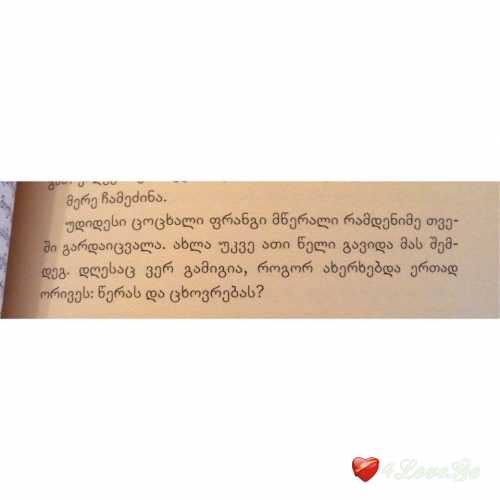 მერე ჩამეძინა.
უდიდესი ცოცხალი ფრანგი მწერალი რამდენიმე თვე-
ში გარდაიცვალა. ახლა უკვე ათი წელი გავიდა მას შემ-
დეგ. დღესაც ვერ გამიგია, როგორ ახერხებდა ერთად
ორივეს: წერას და ცხოვრებას?
4Love.Ge